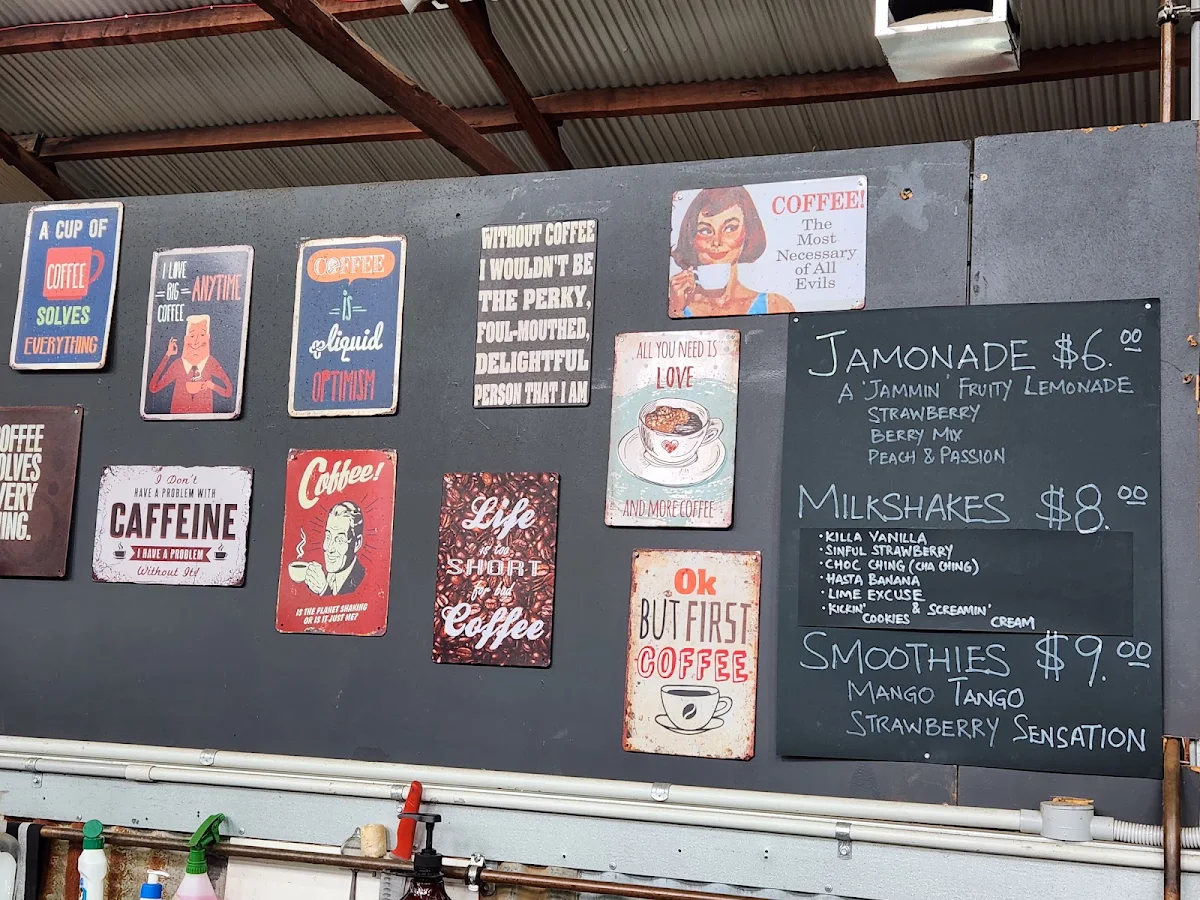 A CUP OF
COFFEE
SOLVES
EVERYTHING
I LOVE
BIG
COFFEE
ANYTIME
COFFEE
IS
liquid
OPTIMISM
WITHOUT COFFEE
I WOULDN'T BE
THE PERKY,
FOUL-MOUTHED,
DELIGHTFUL
PERSON THAT I AM
COFFEE!
The
Most
Necessary
of All
Evils
OFFEE
OLVES
VERY
ING.
I Don't
HAVE A PROBLEM WITH
CAFFEINE
I HAVE A PROBLEM
Without It!
Coffee!
IS THE PLANET SHAKING
OR IS IT JUST ME?
Life
is too
SHORT
for bad
Coffee
ALL YOU NEED IS
LOVE
AND MORE COFFEE
Ok
BUT FIRST
COFFEE
JAMONADE $6.00
A 'JAMMIN' FRUITY LEMONADE
STRAWBERRY
BERRY MIX
PEACH & PASSION
MILKSHAKES $8.00
·KILLA VANILLA
·SINFUL STRAWBERRY
·CHOC CHING (CHA CHING)
·HASTA BANANA
·LIME EXCUSE
·KICKIN' & SCREAMIN'
COOKIES CREAM
SMOOTHIES $9.00
MANGO TANGO
STRAWBERRY SENSATION